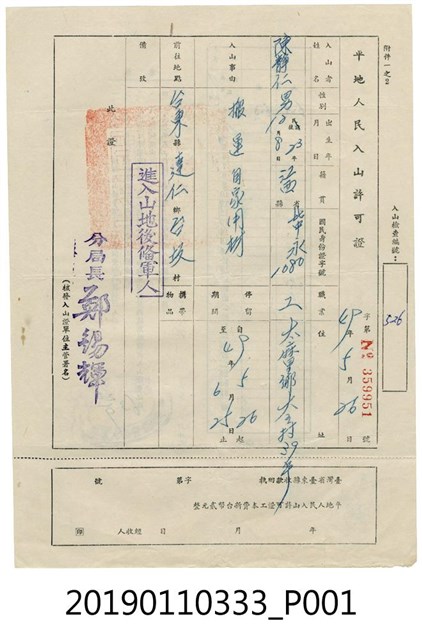 附件一之2
入山檢查編號：
526
平地人民入山許可證
字第 No 359951 號
49年5月26日
入山者姓名
性別
出生年月日
籍貫
國民身份證字號
職業
住址
陳靜仁
男
民國23年12月8日
省 縣
永
1080
工
太麻里鄉大王村
入山事由
搬運自家用樹
停留期間
自49年5月26日起
至49年6月25日止
前往地點
台東縣達仁鄉 村
攜帶物品
備考
進入山地後備軍人
此證
分局長 鄭錫輝
(核發入山證單位主管署名)
臺灣省臺東縣 字第 號
平地人民入山許可證工本費新台幣貳元整
年 月 日 經收人 印
20190110333_P001